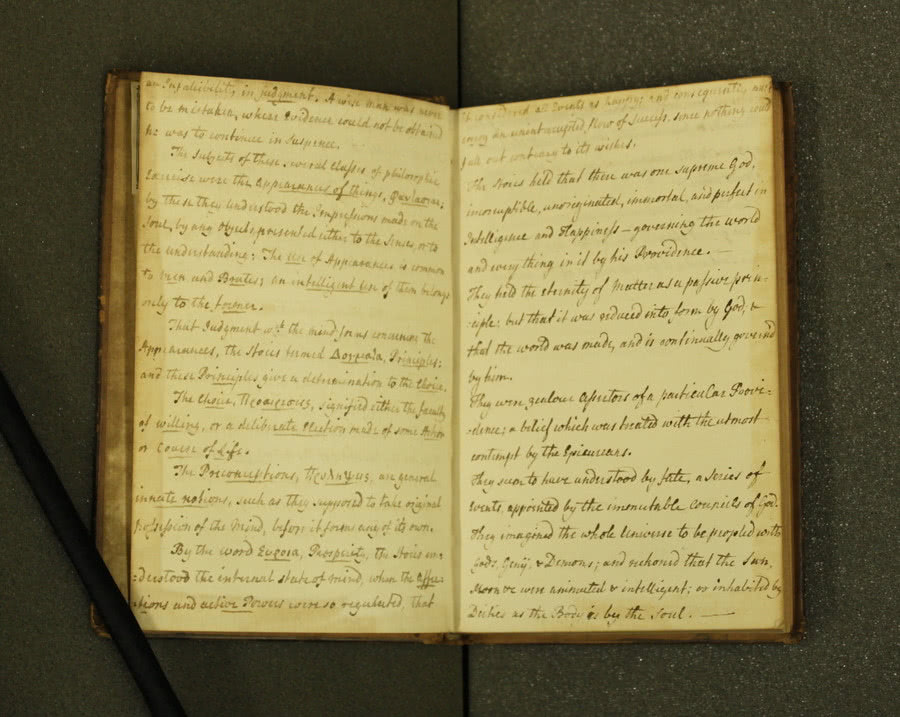 an Infalibility in judgment. A wise man was never
to be mistaken, where Evidence could not be obtained
he was to continue in Suspence.
The Subjects of these several Classes of philosophic
Exercise were the Appearances of things,
by these they understood the Impressions made on the
Soul, by any Objects presented either to the Senses, or to
the understanding; The Use of Appearances is common
to Men and Brutes; an intelligent Use of them belongs
only to the former.
That Judgment wch the mind forms concerning the
Appearances, the Stoics termed Δογματα, Principles;
and these Principles give a determination to the Choice.
The Choice, Προαιρεσις, signified either the faculty
of willing, or a deliberate Election made of some Action
or Course of Life.
The Preconceptions, Προληψεις, are general
innate notions, such as they supposed to take original
Possession of the Mind, before it forms any of its own.
By the word Ευροια, Prosperity, the Stoics un-
:derstood the internal state of mind, when the affec-
:tions and active Powers were so regulated, that
it considered all Events as happy; and consequently, must
enjoy an uninterrupted flow of Success, since nothing could
fall out contrary to its wishes.
The Stoics held that there was one supreme God,
incorruptible, unoriginated, immortal, and perfect in
Intelligence and Happiness — governing the world
and every thing in it by his Providence.
They held the eternity of Matter as a passive prin-
:ciple; but that it was reduced into form by God, &
that the world was made, and is continually govern'd
by him.
They were zealous Assertors of a particular Provi-
:dence; a belief which was treated with the utmost
contempt by the Epicureans.
They seem to have understood by fate, a series of
Events, appointed by the immutable Councils of God.
They imagined the whole Universe to be peopled with
Gods, Genij, & Demons; and reckoned that the Sun,
Moon &c were animated & intelligent; or inhabited by
Deities as the Body is by the Soul. —